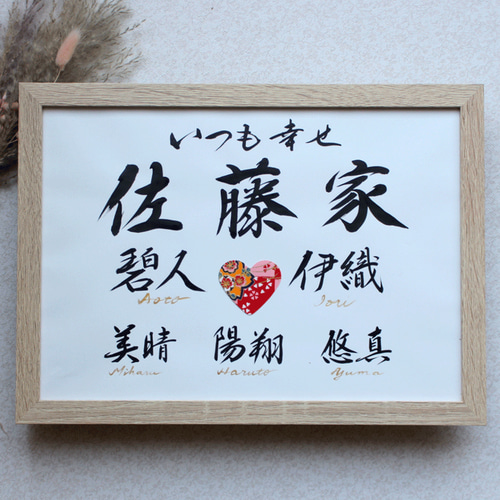 いつも幸せ
佐藤家
碧人 伊織
Aoto Iori
美晴 陽翔 悠真
Miharu Haruto Yuma